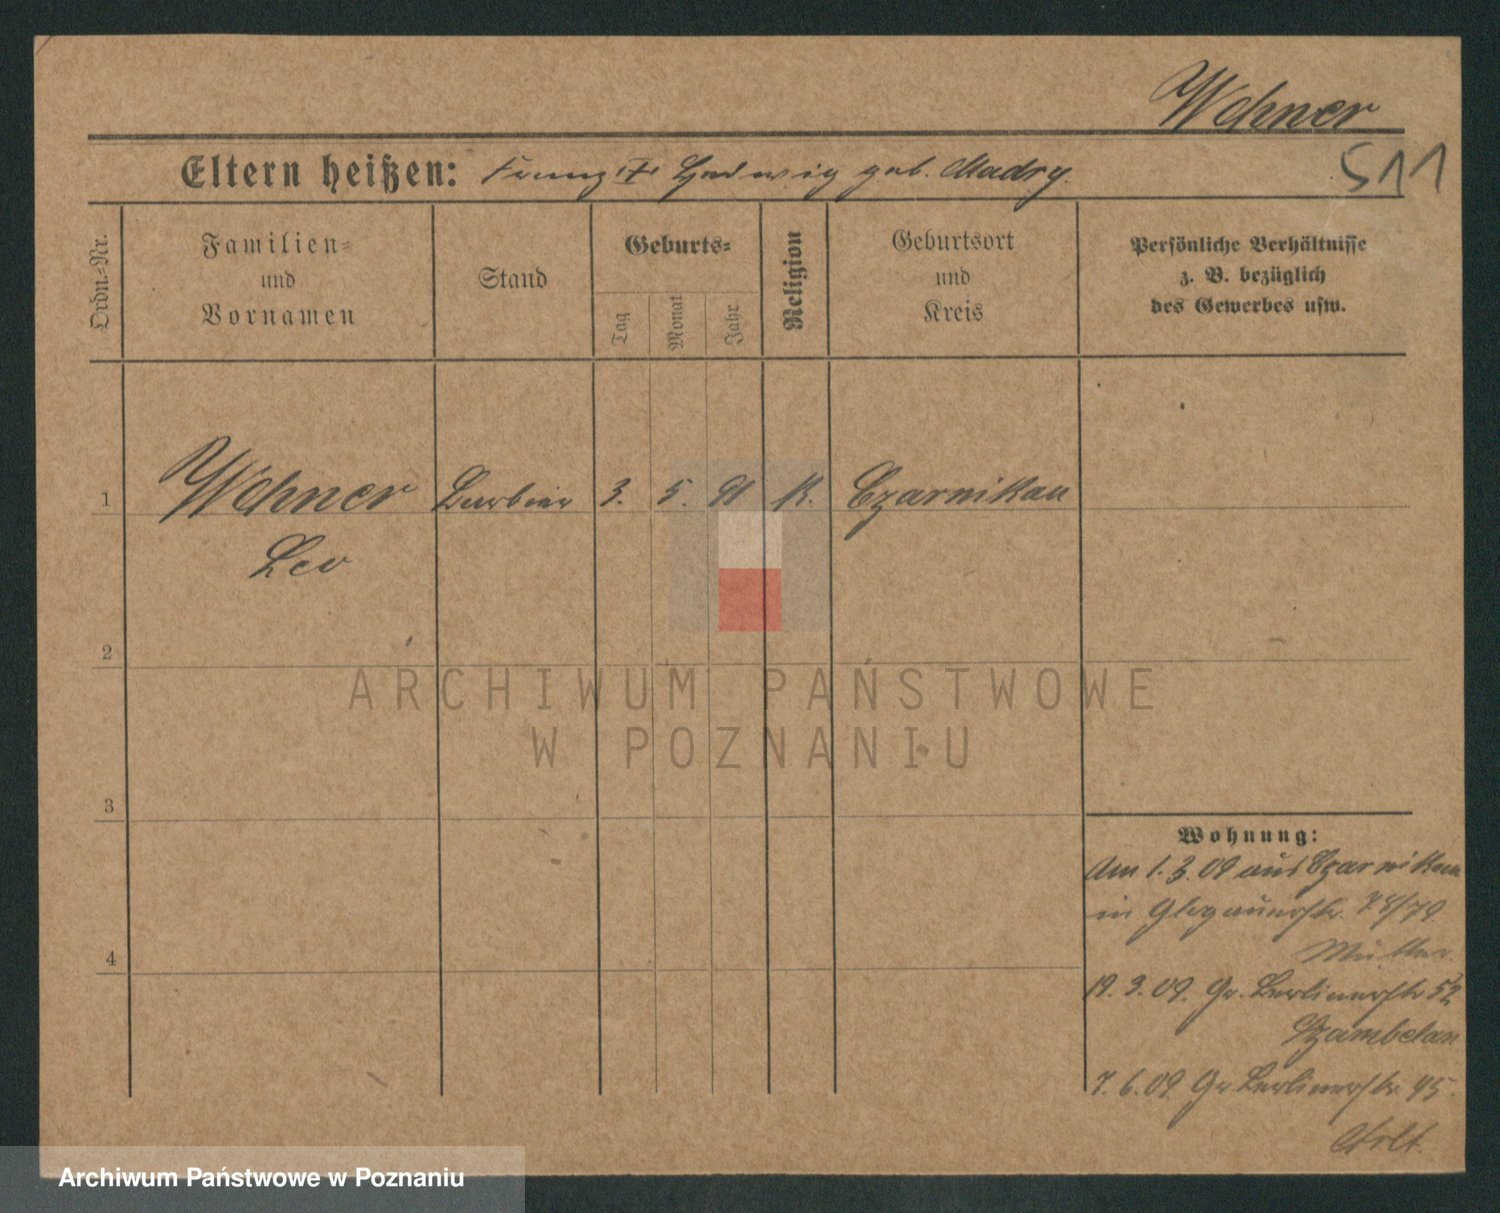 Wehner
Eltern heißen: Franz u. Hedwig geb. Madry.
511
Ordn.-Nr.
Familien-
und
Vornamen
Stand
Geburts-
Tag
Monat
Jahr
Religion
Geburtsort
und
Kreis
Persönliche Verhältnisse
z. B. bezüglich
des Gewerbes usw.
1 Wehner Barbier 3. 5. 91 K. Czarnikau
Leo
2
3
4
Wohnung:
Am 1.3.09 aus Czarnikau
in Glogauerstr. 78/79.
Müller
19.3.09. Gr. Berlinerstr 52
Szambelan
7.6.09. Gr. Berlinerstr. 45.
Arlt.
ARCHIWUM PAŃSTWOWE
W POZNANIU
Archiwum Państwowe w Poznaniu